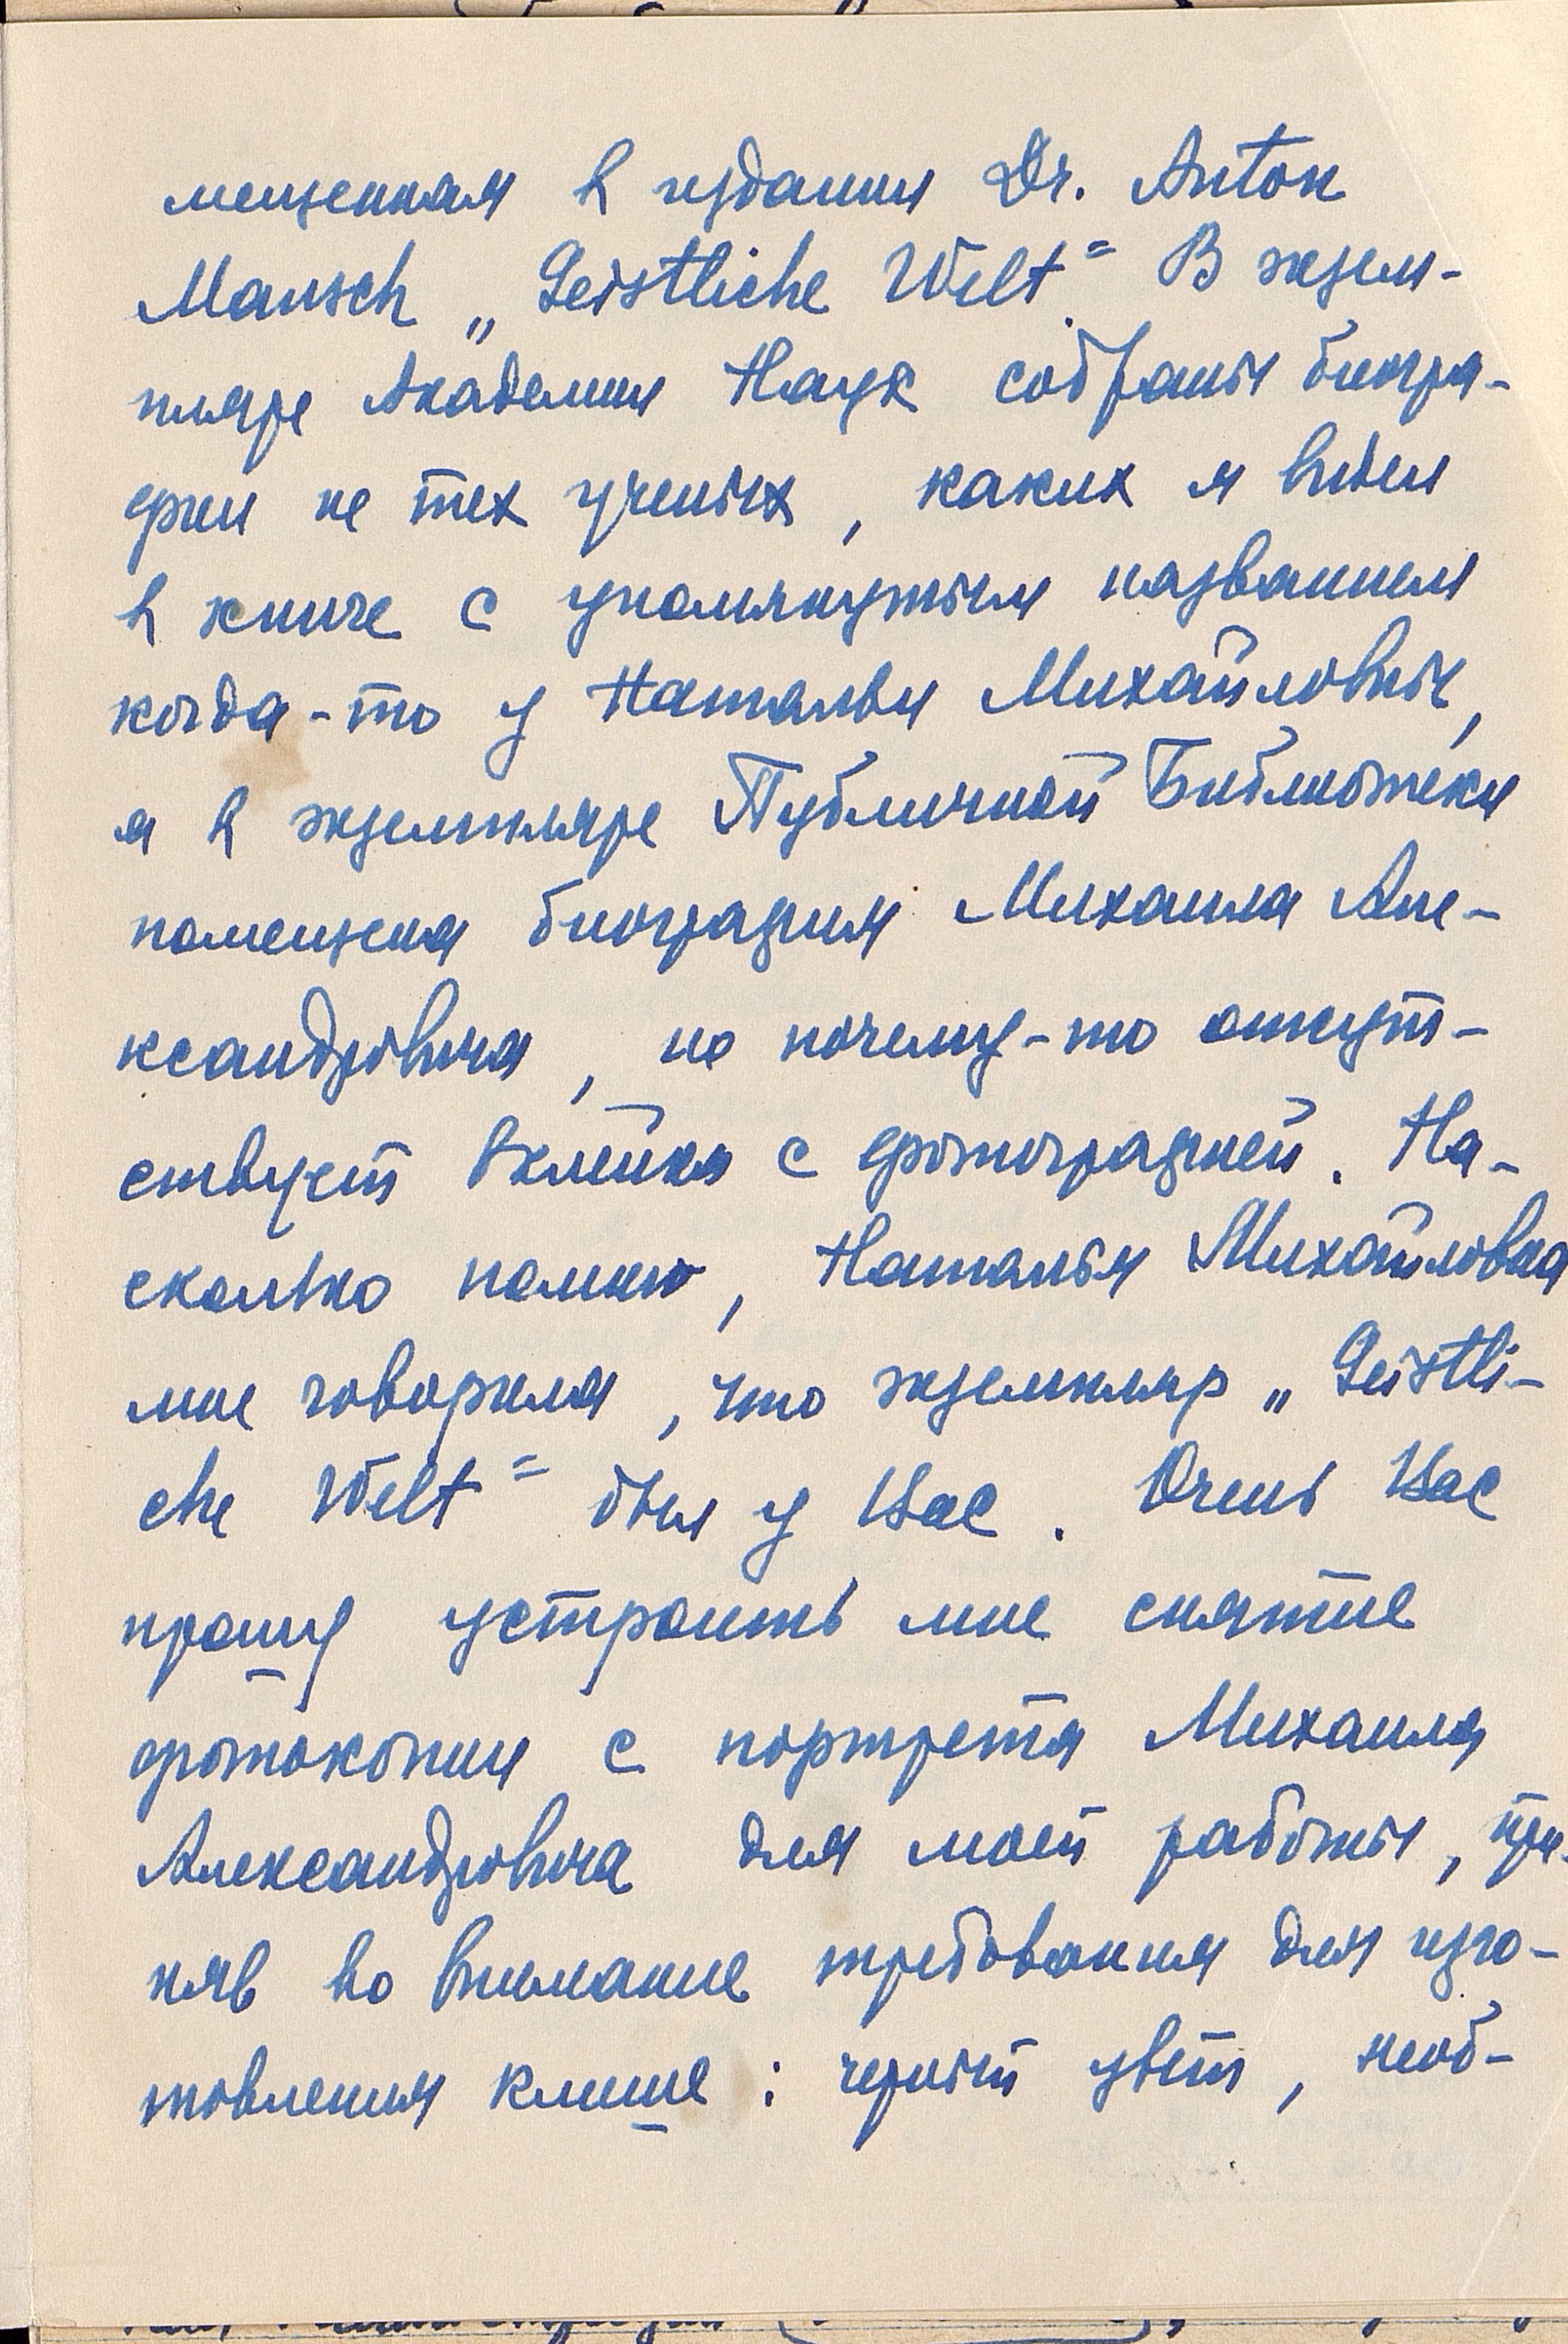 мещенная в издании Dr. Anton
Mansch „Geistliche Welt“. В экзем-
пляре Академии Наук собраны биогра-
фии не тех ученых, каких я видел
в книге с упомянутым названием
когда-то у Натальи Михайловны,
а в экземпляре Публичной Библиотеки
помещена биография Михаила Але-
ксандровича, но почему-то отсут-
ствует вклейка с фотографией. На-
сколько помню, Наталья Михайловна
мне говорила, что экземпляр „Geistli-
che Welt“ был у Вас. Очень Вас
прошу устроить мне снятие
фотокопии с портрета Михаила
Александровича для моей работы, при-
няв во внимание требования для изго-
товления клише: черный цвет, необ-